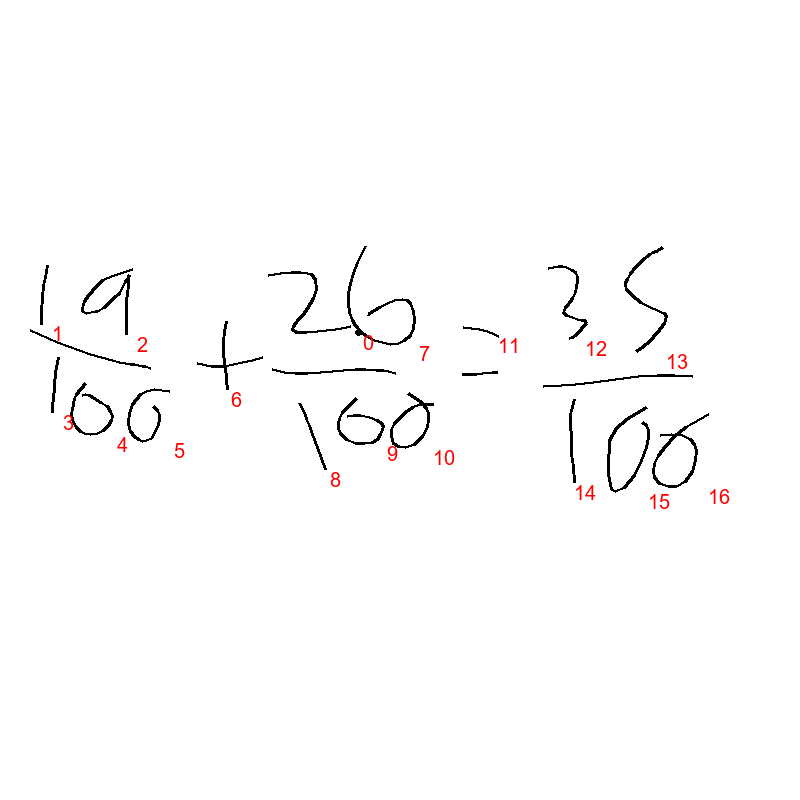 19/100 + 26/100 = 35/100
1 2 3 4 5 6 0 7 8 9 10 11 12 13 14 15 16